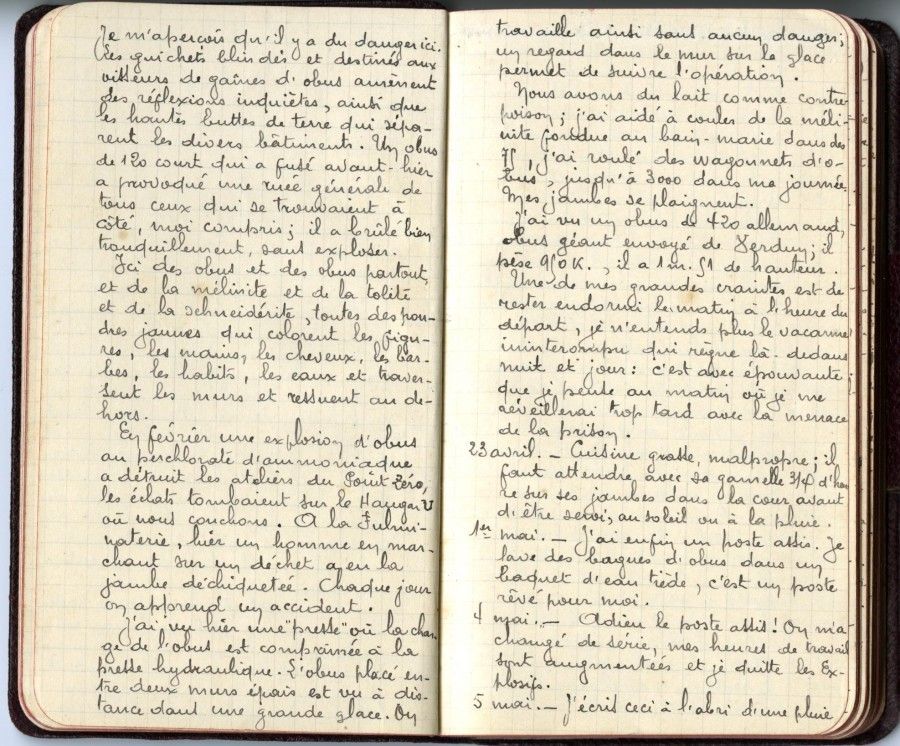 Je m'aperçois qu'il y a du danger ici.
Les guichets blindés et destinés aux
visseurs de gaînes d'obus amènent
des réflexions inquiètes, ainsi que
les hautes buttes de terre qui sépa-
rent les divers bâtiments. Un obus
de 120 court qui a fusé avant-hier
a provoqué une ruée générale de
tous ceux qui se trouvaient à
côté, moi compris; il a brûlé bien
tranquillement, sans exploser.
Ici des obus et des obus partout,
et de la mélinite et de la tolite
et de la schneidérite, toutes des pou-
dres jaunes qui colorent les figu-
res, les mains, les cheveux, les bar-
bes, les habits, les eaux et traver-
sent les murs et ressuent au de-
hors.
En février une explosion d'obus
au perchlorate d'ammoniaque
a détruit les ateliers du Point Zéro,
les éclats tombaient sur le Hangar U
où nous couchons. A la Fulmi-
naterie, hier un homme en mar-
chant sur un déchet a eu la
jambe déchiquetée. Chaque jour
on apprend un accident.
J'ai vu hier une "presse" où la char-
ge de l'obus est comprimée à la
presse hydraulique. L'obus placé en-
tre deux murs épais est vu à dis-
tance dans une grande glace. On
travaille ainsi sans aucun danger;
un regard dans le mur sur la glace
permet de suivre l'opération.
Nous avons du lait comme contre-
poison; j'ai aidé à couler de la méli-
nite fondue au bain-marie dans des
75, j'ai roulé des wagonnets d'o-
bus, jusqu'à 3000 dans ma journée.
Mes jambes se plaignent.
J'ai vu un obus de 420 allemand,
obus géant envoyé de Verdun; il
pèse 950 K., il a 1m.51 de hauteur.
Une de mes grandes craintes est de
rester endormi le matin à l'heure du
départ, je n'entends plus le vacarme
ininterrompu qui règne là-dedans
nuit et jour: c'est avec épouvante
que je pense au matin où je me
réveillerai trop tard avec la menace
de la prison.
23 avril. - Cuisine grasse, malpropre; il
faut attendre avec sa gamelle 3/4 d'heu-
re sur ses jambes dans la cour avant
d'être servi, au soleil ou à la pluie.
1er mai. - J'ai enfin un poste assis. Je
lave des bagues d'obus dans un
baquet d'eau tiède, c'est un poste
rêvé pour moi.
4 mai. - Adieu le poste assis! On m'a
changé de série, mes heures de travail
sont augmentées et je quitte les Ex-
plosifs.
5 mai. - J'écris ceci à l'abri d'une pluie